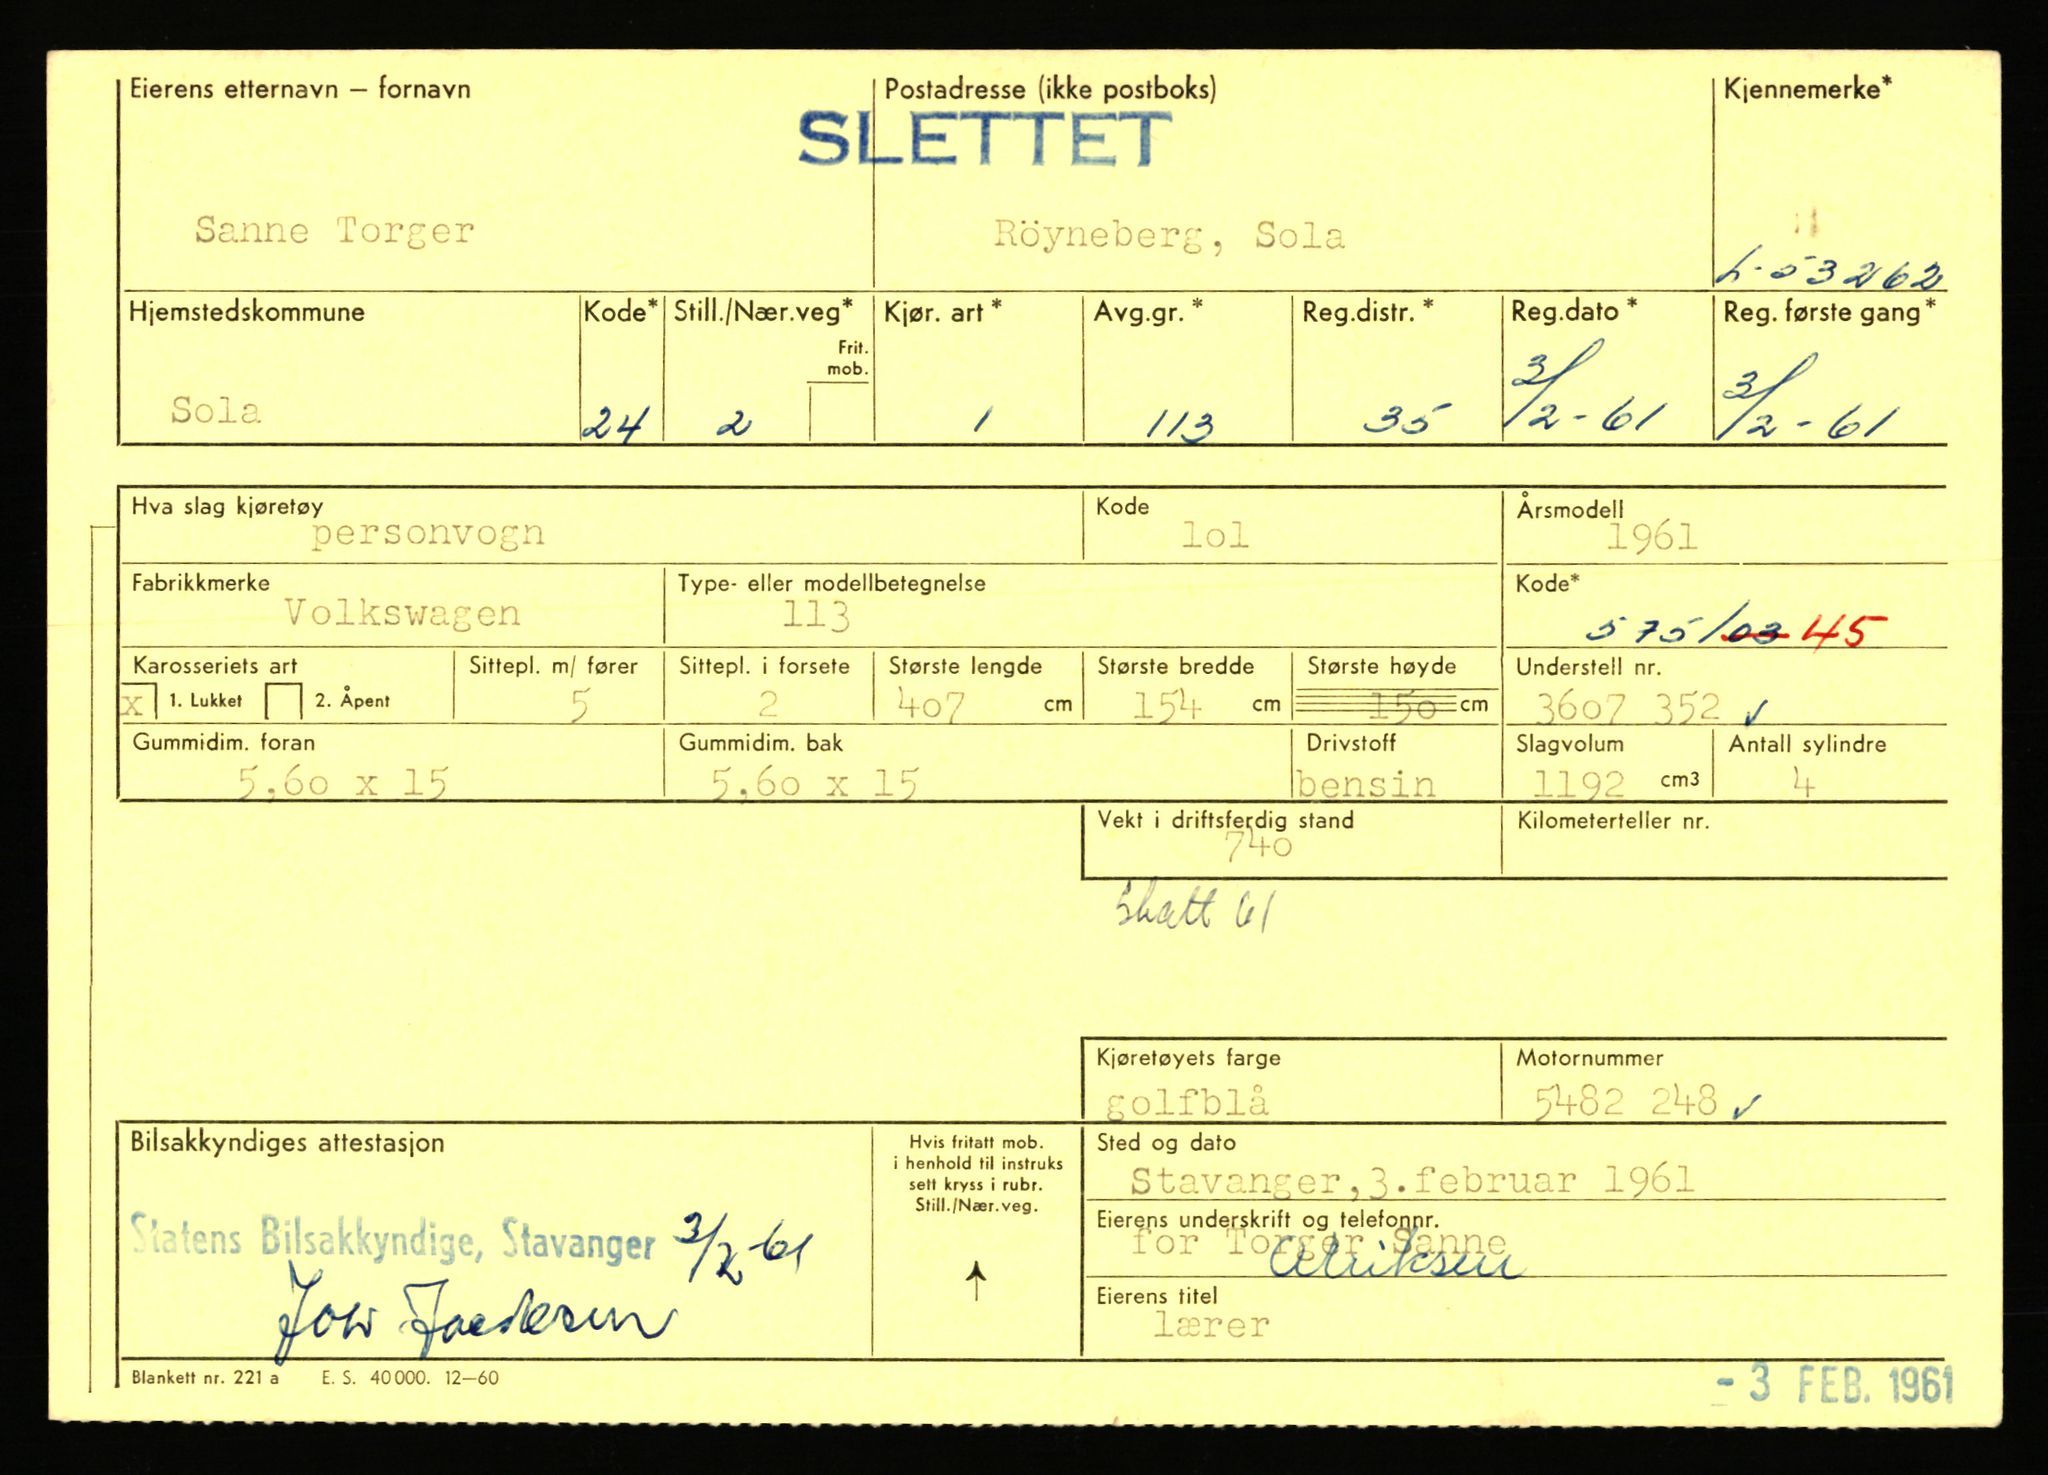 Eierens etternavn – fornavn Postadresse (ikke postboks) Kjennemerke*
SLETTET
Sanne Torger Röyneberg, Sola
L-53262
Hjemstedskommune Kode* Still./Nær.veg* Kjør. art* Avg.gr.* Reg.distr.* Reg.dato* Reg. første gang*
Frit.
mob.
Sola 24 2 1 113 35 3/2-61 3/2-61
Hva slag kjøretøy Kode Årsmodell
personvogn lol 1961
Fabrikkmerke Type- eller modellbetegnelse Kode*
Volkswagen 113 575/03 45
Karosseriets art Sittepl. m/ fører Sittepl. i forsete Største lengde Største bredde Største høyde Understell nr.
x 1. Lukket 2. Åpent 5 2 407 cm 154 cm 150 cm 3607 352 ✓
Gummidim. foran Gummidim. bak Drivstoff Slagvolum Antall sylindre
5,60 x 15 5,60 x 15 bensin 1192 cm3 4
Vekt i driftsferdig stand Kilometerteller nr.
740
Skatt 61
Kjøretøyets farge Motornummer
golfblå 5482 248 ✓
Bilsakkyndiges attestasjon
Statens Bilsakkyndige, Stavanger 3/2-61
Hvis fritatt mob.
i henhold til instruks
sett kryss i rubr.
Still./Nær.veg.
Sted og dato
Stavanger,3.februar 1961
Eierens underskrift og telefonnr.
for Torger Sanne
Eierens titel
lærer
Blankett nr. 221 a E. S. 40 000. 12–60
- 3 FEB. 1961